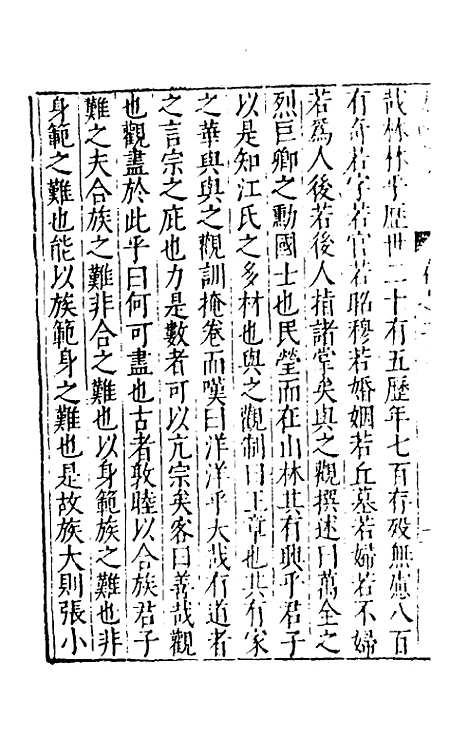 哉林林乎歷世二十有五歷年七百存歿無慮八百
有奇若字若官若昭穆若婚姻若丘墓若婦若不婦
若爲人後若後人指諸掌矣與之觀撰述曰萬全之
烈巨卿之勳國士也民瑩而在山林其有興乎君子
以是知江氏之多材也與之觀制曰王章也其有家
之華與與之觀訓掩卷而嘆曰洋洋乎大哉有道者
之言宗之庇也力是數者可以亢宗矣客曰善哉觀
也觀盡於此乎曰何可盡也古者敦睦以合族君子
難之夫合族之難非合之難也以身範族之難也非
身範之難也能以族範身之難也是故族大則張小